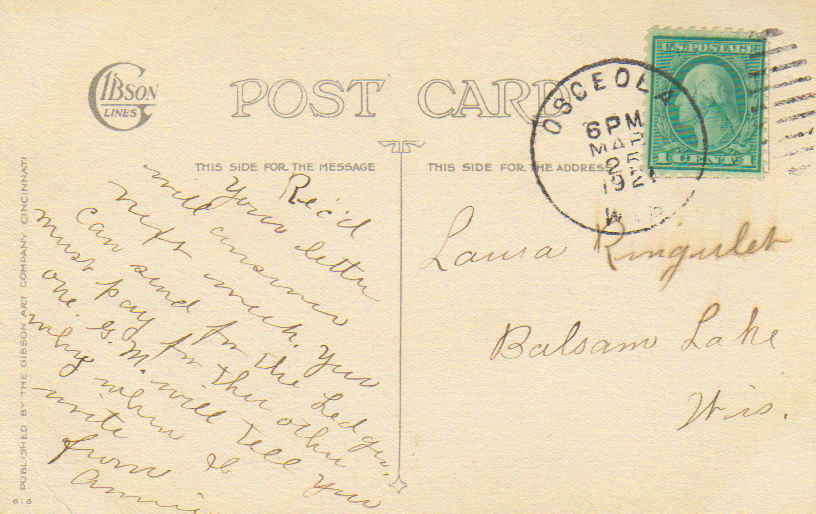 GIBSON
LINES
POST CARD
THIS SIDE FOR THE MESSAGE
THIS SIDE FOR THE ADDRESS
U.S. POSTAGE
1 CENT 1
OSCEOLA
6 PM
MAR
25
1921
WIS
PUBLISHED BY THE GIBSON ART COMPANY CINCINNATI
Rec'd
your letter
will answer
next week. You
can send for the Ledger
must pay for the other
one. G. M. will tell you
why when I
write
from
Annie
Laura Ringulet
Balsam Lake
Wis.